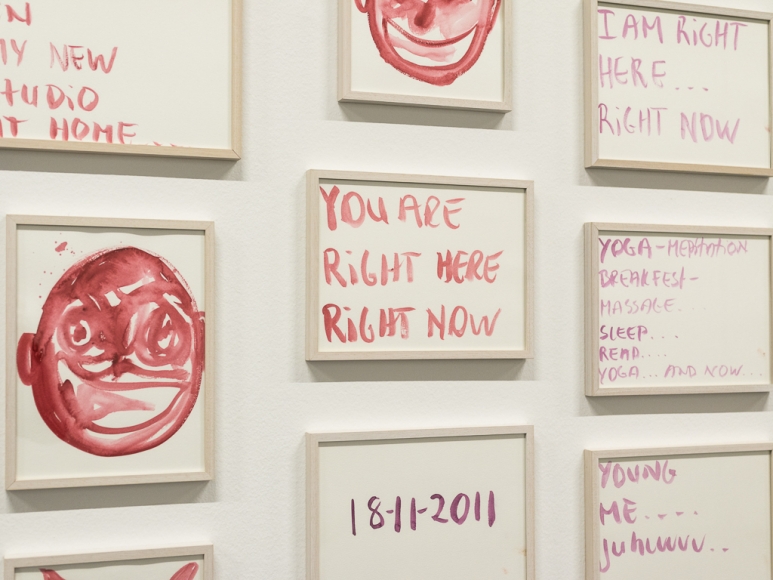 MY NEW
STUDIO
AT HOME...
YOU ARE
RIGHT HERE
RIGHT NOW
18-11-2011
I AM RIGHT
HERE...
RIGHT NOW
YOGA-MEDITATION
BREAKFEST-
MASSAGE....
SLEEP....
READ....
YOGA...AND NOW...
YOUNG
ME....